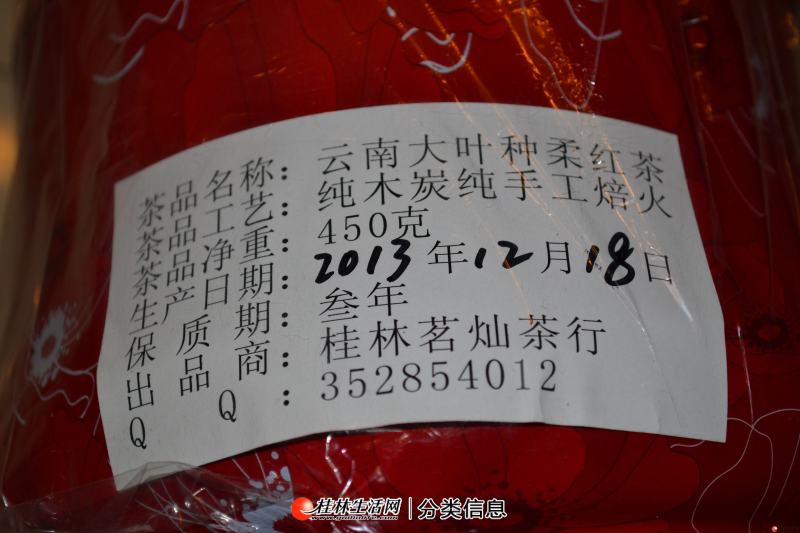 茶品名称：云南大叶种柔红茶
茶品工艺：纯木炭纯手工焙火
茶品净重：450克
生产日期：2013年12月18日
保质期：叁年
出品商：桂林茗灿茶行
QQ：352854012
桂林生活网 | 分类信息
www.guilinlife.com